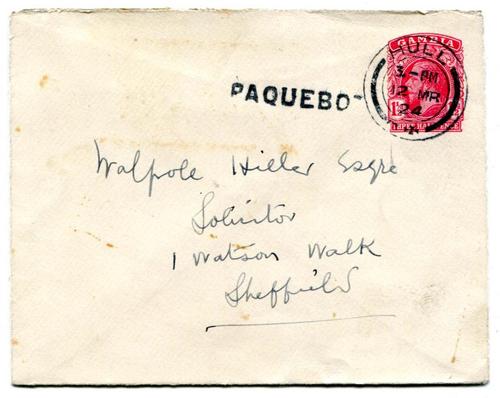 GAMBIA
HULL
3-PM
12 MR
24
1½
THREE HALF PENCE
PAQUEBO
Walpole Hiller Esqre
Solicitor
1 Watson Walk
Sheffield